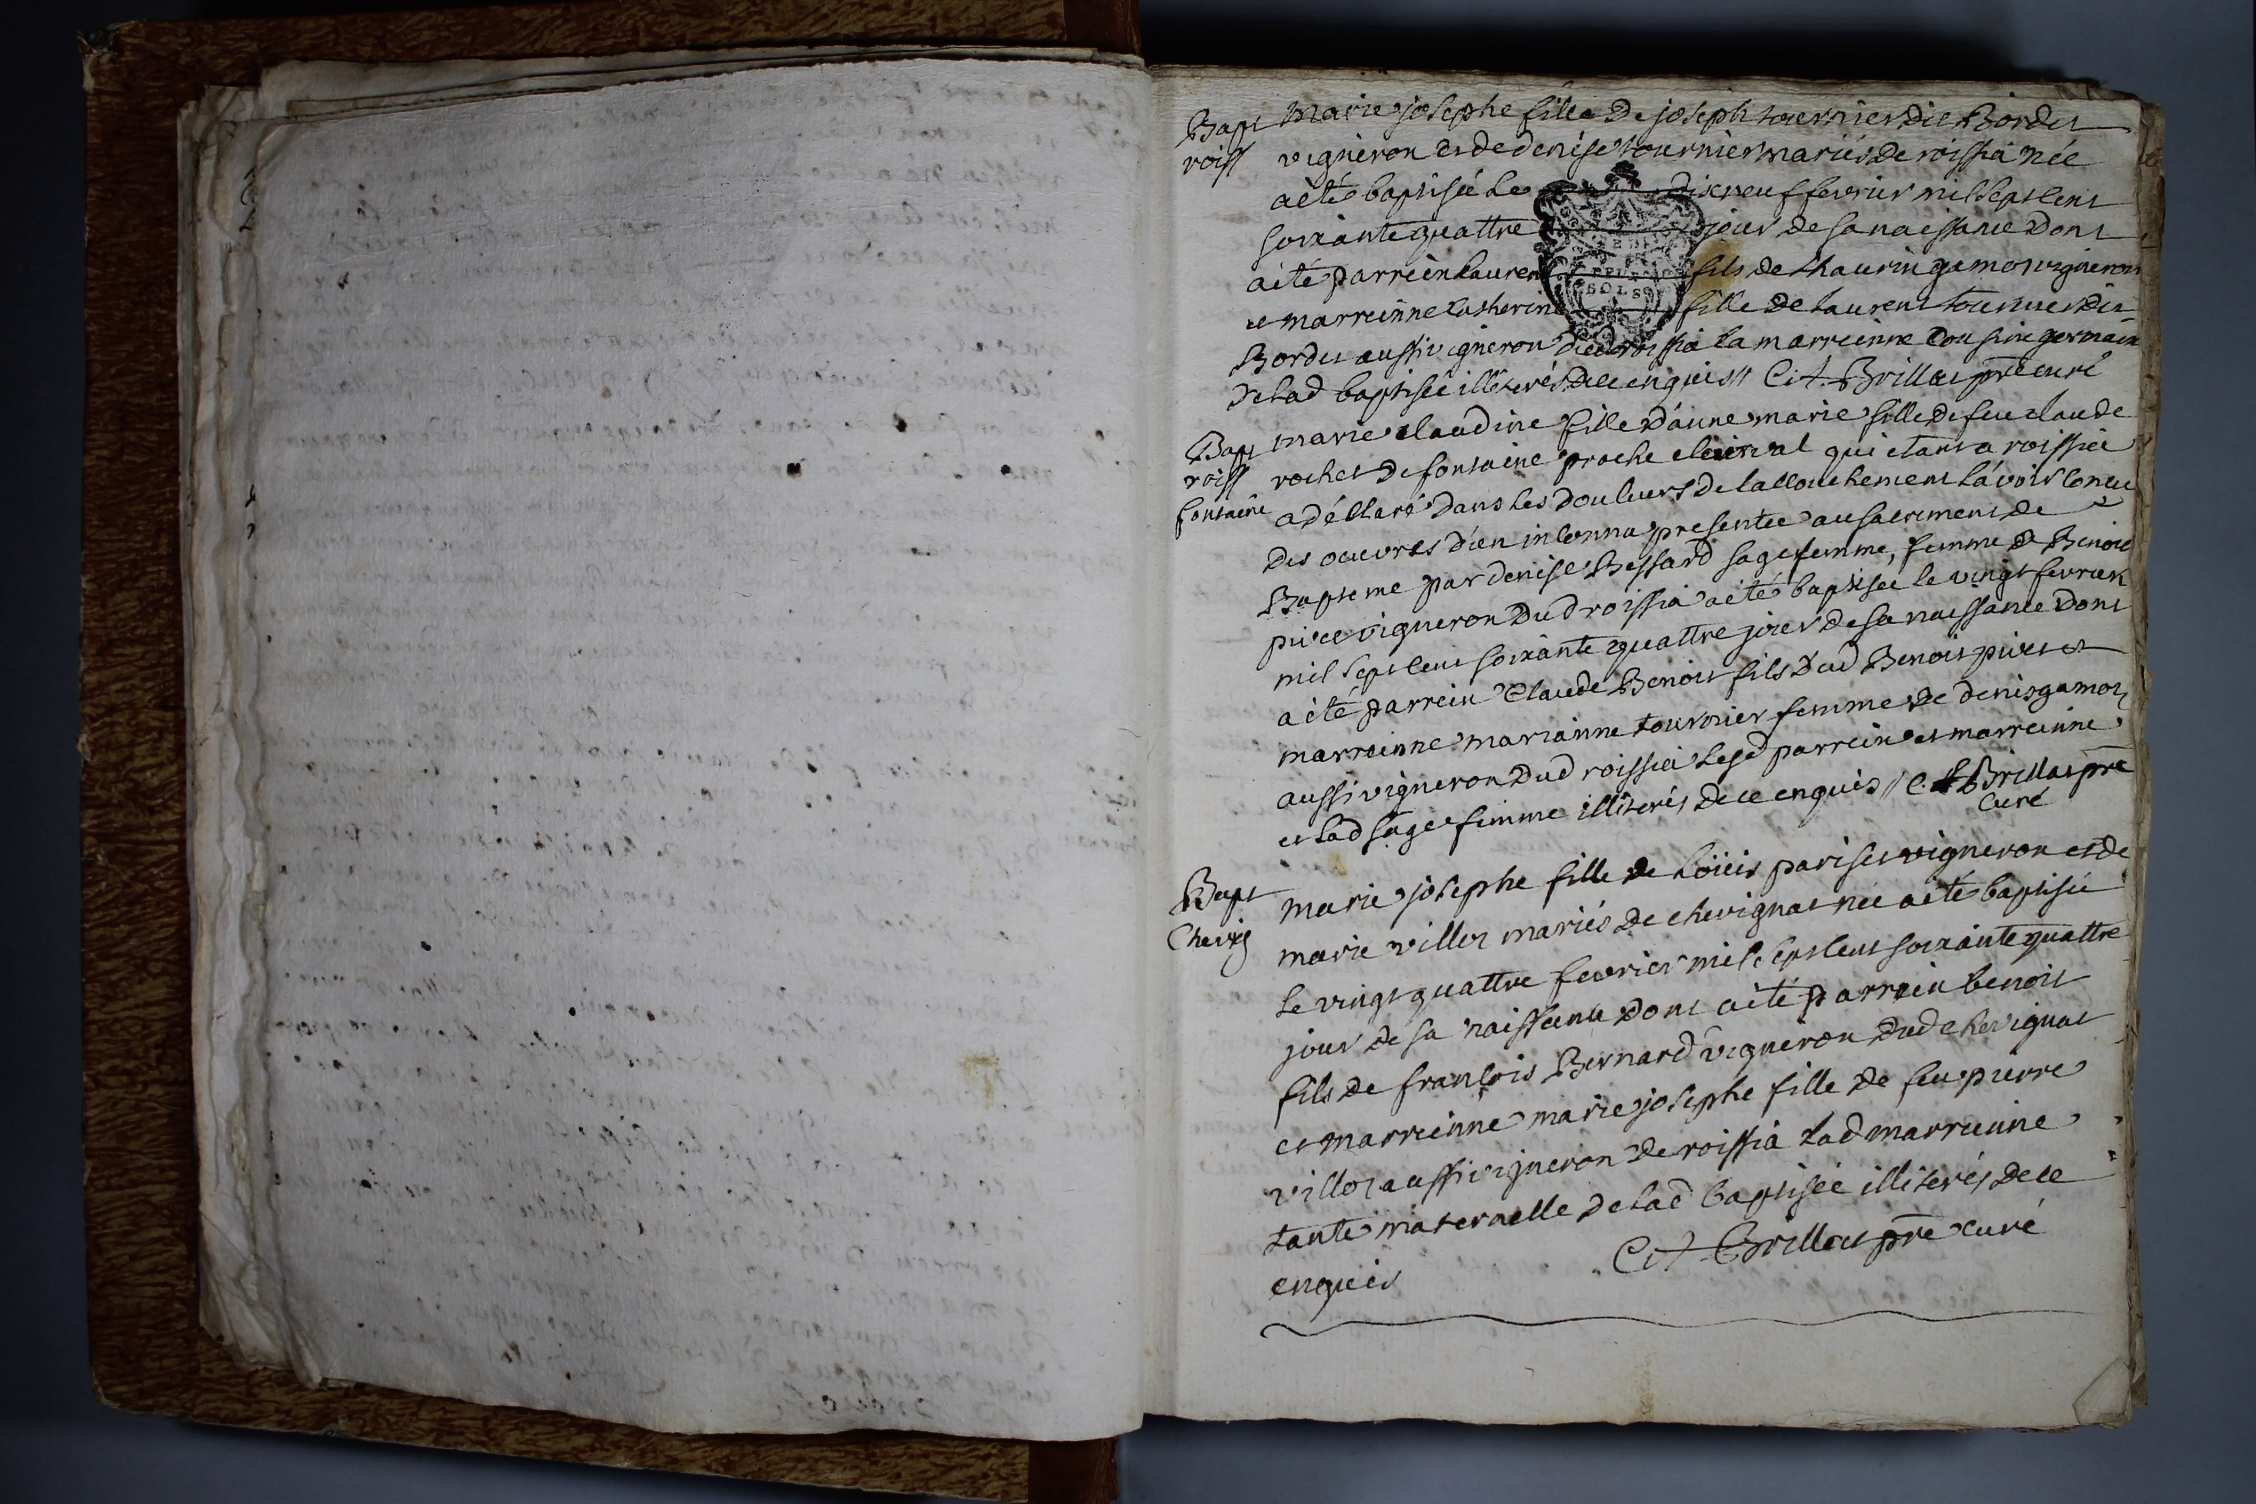 Bapt
roiss
marie josephe fille de joseph tournier dit Bordet
vigneron et de denise tournier mariés de roissia née
a été baptisée le dix neuf fevrier mil sept cent
soixante quattre jour de sa naissance dont
a été parrein laurent fils de thaurin gamot vigneron
et marreinne catherine fille de laurent tournier dit
Bordet aussi vigneron dud roissia la marreinne cousine germaine
de lad baptisée illiterés de ce enquis // C: A: Brillat pre curé
Bapt
roiss
fontaine
marie claudine fille d'anne marie fille de feu claude
rochet de fontaine proche clairval qui etant a roissia
a déclaré dans les douleurs de laccouchement l'avoir concue
des oeuvres d'un inconnu presentée au sacrement de
Bapteme par denise Bessard sage femme, femme de Benoit
pivet vigneron dud roissia a été baptisée le vingt fevrier
mil sept cent soixante quattre jour de sa naissance dont
a été parrein Claude Benoit fils dud Benoit pivet et
marreinne marianne tournier femme de denis gamot
aussi vigneron dud roissia lesd parrein et marreinne
et lad sage femme illiterés de ce enquis // C: A Brillat pre
curé
Bapt
Chevig
marie josephe fille de Loüis pariset vigneron et de
marie villot mariés de chevignat née a été baptisée
le vingt quattre fevrier mil sept cent soixante quattre
jour de sa naissance dont a été parrein benoit
fils de francois Bernard vigneron dud chevignat
et marreinne marie josephe fille de feu pierre
villot aussi vigneron de roissia lad marreinne
tante maternelle de lad baptisée illiterés de ce
enquis C: A Brillat pre curé